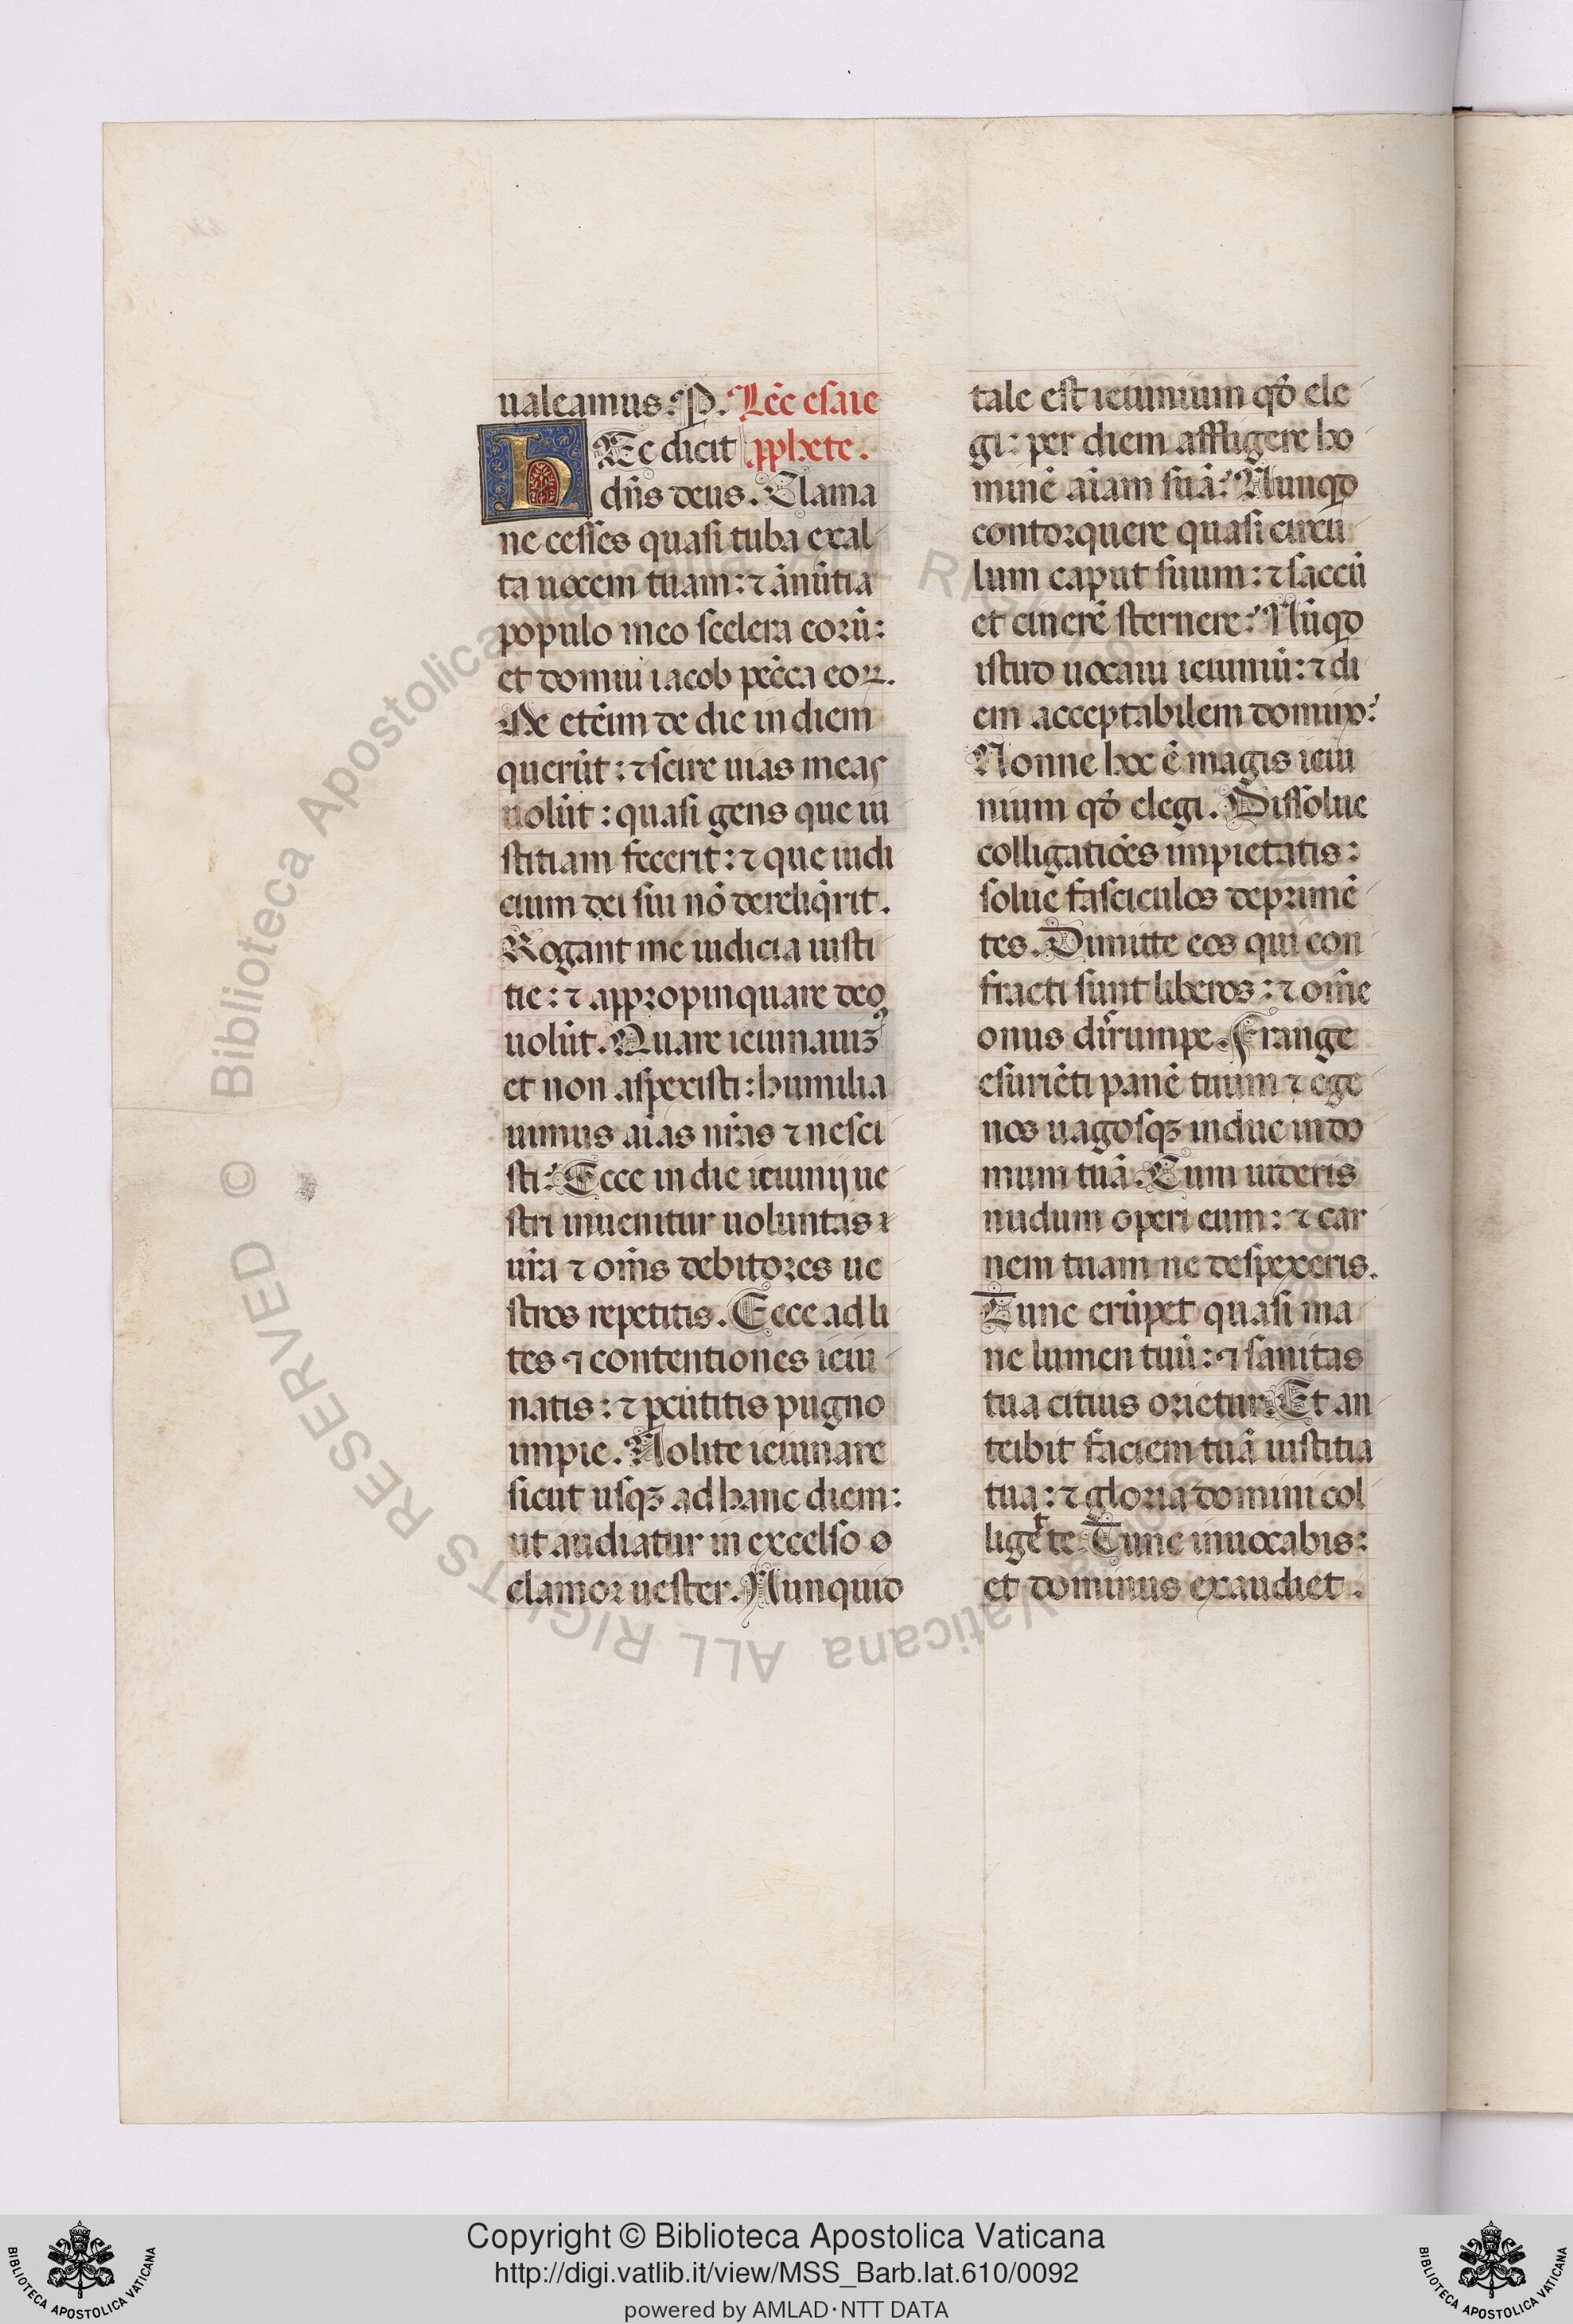 ualeamus. P. Lēc esaie
HEc dicit pphete.
dn̄s deus. Clama
ne cesses quasi tuba exal
ta uocem tuam: ⁊ ānūtia
populo meo scelera eorū:
et domui iacob pēcca eoꝝ.
Me etēim de die in diem
querūt: ⁊ scire uias meas
uolūt: quasi gens que iu
stitiam fecerit: ⁊ que iudi
cium dei sui nō dereliq̄rit.
Rogant me iudicia iusti
tie: ⁊ appropinquare deo
uolūt. Quare ieiunauimꝰ
et non aspexisti: humilia
uimus aīas nr̄as ⁊ nesci
sti? Ecce in die ieiunij ue
stri inuenitur uoluntas
ur̄a ⁊ om̄s debitores ue
stros repetitis. Ecce ad li
tes ⁊ contentiones ieiu
natis: ⁊ ꝑcūtitis pugno
impie. Nolite ieiunare
sicut usqꝫ ad hanc diem:
ut audiatur in excelso
clamor uester. Nunquid
tale est ieiunium qd̄ ele
gi: per diem affligere ho
minē aīam suā? Nunqd
contorquere quasi circū
lum caput suum: ⁊ saccū
et cinerē sternere? Nūqd
istud uocaui ieiuniū: ⁊ di
em acceptabilem domino?
Nonne hoc ē magis ieiu
nium qd̄ elegi. Dissolue
colligatiōes impietatis:
solue fasciculos deprimē
tes. Dimitte eos qui con
fracti sunt liberos: ⁊ om̄e
onus dirumpe. Frange
esuriēti panē tuum ⁊ ege
nos uagosqꝫ induc in do
mum tuā. Cum uideris
nudum operi eum: ⁊ car
nem tuam ne despexeris.
Tunc erūpet quasi ma
ne lumen tuū: ⁊ sanitas
tua citius orietur. Et an
teibit faciem tuā iustitia
tua: ⁊ gloria domini col
liget te. Tunc inuocabis:
et dominus exaudiet.
© Biblioteca Apostolica Vaticana ALL RIGHTS RESERVED
Copyright © Biblioteca Apostolica Vaticana
http://digi.vatlib.it/view/MSS_Barb.lat.610/0092
powered by AMLAD·NTT DATA
BIBLIOTECA APOSTOLICA VATICANA
BIBLIOTECA APOSTOLICA VATICANA